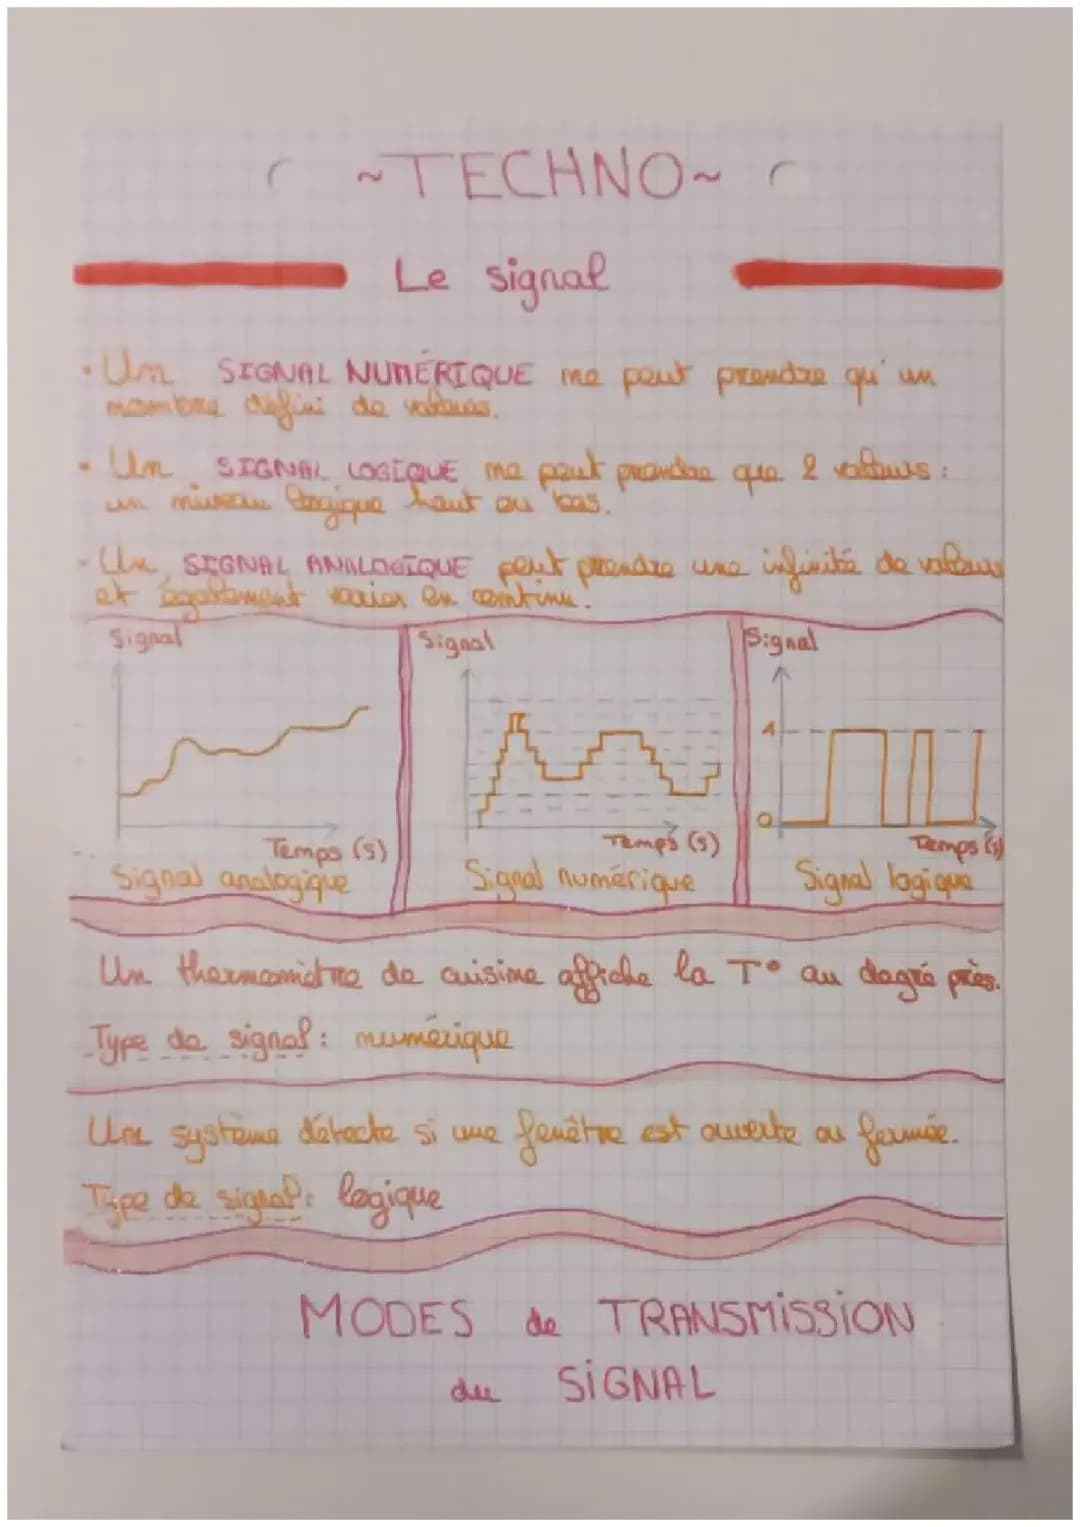 ~TECHNO~
Le signal
• Un SIGNAL NUMÉRIQUE ne peut prendre qu'un
nombre défini de valeurs.
• Un SIGNAL LOGIQUE ne peut prendre que 2 valeurs :
un niveau logique haut ou bas.
• Un SIGNAL ANALOGIQUE peut prendre une infinité de valeurs
et également varier en continu.
Signal
Temps (s)
Signal analogique
Signal
Temps (s)
Signal numérique
Signal
1
0
Temps (s)
Signal logique
Un thermomètre de cuisine affiche la T° au degré près.
Type de signal : numérique
Un système détecte si une fenêtre est ouverte ou fermée.
Type de signal : logique
MODES de TRANSMISSION
du SIGNAL